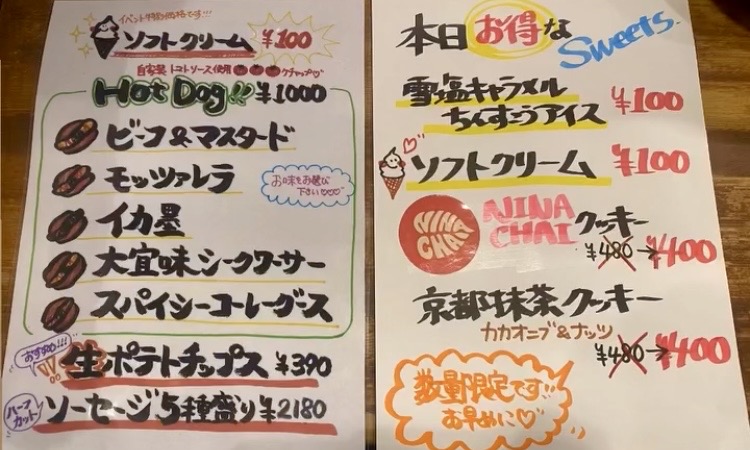 イベント特別価格です!!!
ソフトクリーム ¥100
自家製トマトソース使用 ケチャップ♡
Hot Dog!! ¥1000
ビーフ&マスタード
モッツァレラ
お味をお選び
下さい♡♡♡
イカ墨
大宜味シークワーサー
スパイシーコーレーグース
おすすめ!!!
生ポテトチップス ¥390
ハーフ
カット
ソーセージ5種盛り ¥2180
本日お得な
Sweets.
雪塩キャラメル
ちんすこうアイス ¥100
ソフトクリーム ¥100
NINA
CHAI
NINA
CHAI クッキー
¥480→¥400
京都抹茶クッキー
カカオニブ&ナッツ
¥480→¥400
数量限定です!!
お早めに♡